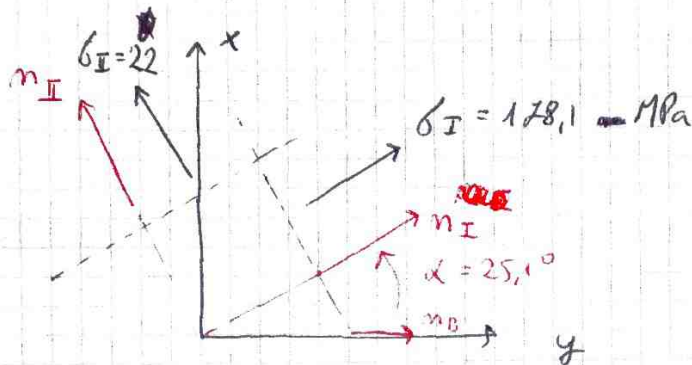 σII = 22
x
nII
σI = 178,1 MPa
nI
α = 25,1°
nB
y